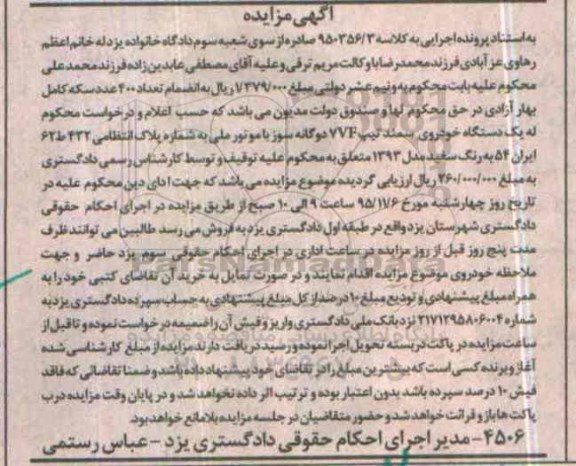 آگهی مزایده
به استناد پرونده اجرایی به کلاسه ۹۵۰۳۵۶/۳ صادره از سوی شعبه سوم دادگاه خانواده یزد له خانم اعظم
رهاوی عزآبادی فرزند محمدرضا با وکالت مریم ترقی و علیه آقای مصطفی عابدین زاده فرزند محمدعلی
محکوم علیه بابت محکوم به و نیم عشر دولتی مبلغ ۱/۳۷۹/۰۰۰ ریال به انضمام تعداد ۴۰۰ عدد سکه کامل
بهار آزادی در حق محکوم لها و صندوق دولت مدیون می باشد که حسب اعلام و درخواست محکوم
له یک دستگاه خودروی سمند تیپ ۷۷۴ دوگانه سوز با موتور ملی به شماره پلاک انتظامی ۴۳۲ ط ۶۲
ایران ۵۴ به رنگ سفید مدل ۱۳۹۳ متعلق به محکوم علیه توقیف و توسط کارشناس رسمی دادگستری
به مبلغ ۲۶۰/۰۰۰/۰۰۰ ریال ارزیابی گردیده موضوع مزایده می باشد که جهت ادای دین محکوم علیه در
تاریخ روز چهارشنبه مورخ ۹۵/۱۱/۶ ساعت ۹ الی ۱۰ صبح از طریق مزایده در اجرای احکام حقوقی
دادگستری شهرستان یزد واقع در طبقه اول دادگستری یزد به فروش می رسد طالبین می توانند ظرف
مدت پنج روز قبل از روز مزایده در ساعت اداری در اجرای احکام حقوقی سوم یزد حاضر و جهت
ملاحظه خودروی موضوع مزایده اقدام نمایند و در صورت تمایل به خرید آن تقاضای کتبی خود را به
همراه مبلغ پیشنهادی و تودیع مبلغ ۱۰ درصد از کل مبلغ پیشنهادی به حساب سپرده دادگستری یزد به
شماره ۲۱۷۱۲۹۵۸۰۶۰۰۴ نزد بانک ملی دادگستری واریز و فیش آن را ضمیمه درخواست نموده و تا قبل از
ساعت مزایده در پاکت دربسته تحویل اجرا نموده و رسید دریافت دارند مزایده از مبلغ کارشناسی شده
آغاز و برنده کسی است که بیشترین مبلغ را در تقاضای خود پیشنهاد داده باشد و ضمنا تقاضائی که فاقد
فیش ۱۰ درصد سپرده باشد بدون اعتبار بوده و ترتیب اثر داده نخواهد شد و در پایان وقت مزایده درب
پاکت ها باز و قرائت خواهد شد و حضور متقاضیان در جلسه مزایده بلامانع خواهد بود.
۴۵۰۶- مدیر اجرای احکام حقوقی دادگستری یزد - عباس رستمی